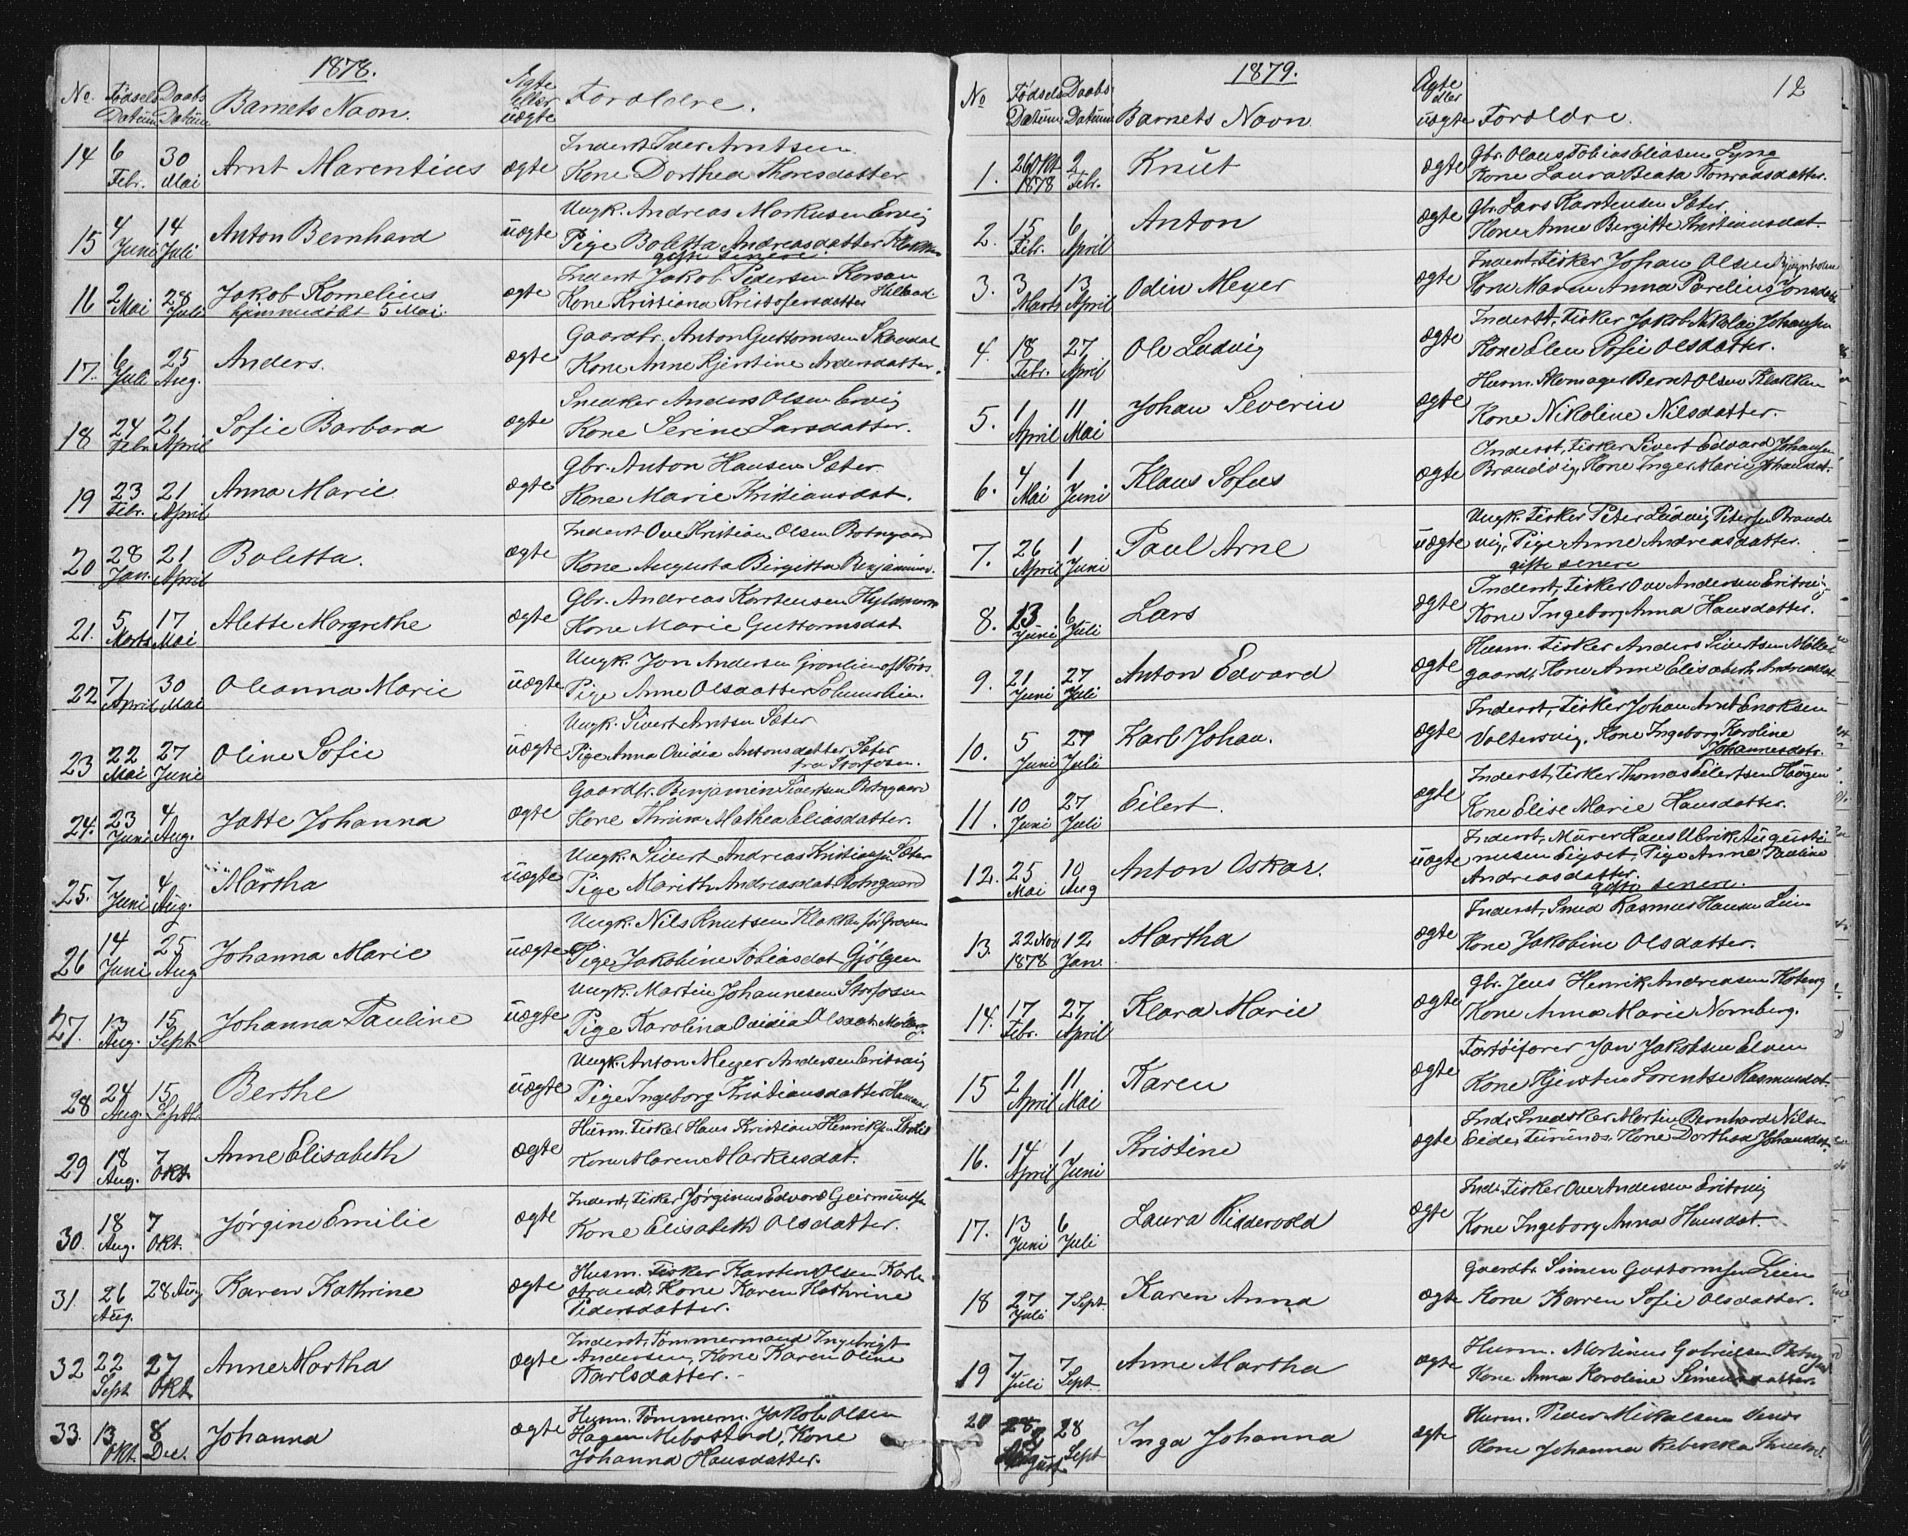 1878.
No. Fødsels Datum Daabs Datum Barnets Navn. Ægte eller uægte Forældre.
14 6 Febr. 30 Mai Arnt Marentius ægte Inderst Iver Arntsen
Kone Dorthea Thoresdatter
15 4 Juni 14 Juli Anton Bernhard uægte Ungk. Andreas Markusen Ervig
Pige Boletta Andreasdatter
gifte senere.
16 2 Mai 28 Juli Jakob Kornelius ægte Inderst Jakob Pedersen
hjemmedøbt 5 Mai. Kone Kristiana Kristofersdatter
17. 6 Juli 25 Aug. Anders. ægte Gaardbr. Anton Guttormsen
Kone Anne Kjerstine Andersdatter.
18 24 Febr. 21 April Sofie Barbara ægte Snedker Anders Olsen Ervig
Kone Serine Larsdatter.
19 23 Febr. 21 April Anna Marie ægte Gbr. Anton Hansen Sæter
Kone Marie Kristiansdat.
20 28 Jan. 21 April Boletta. ægte Inderst Ove Kristian Olsen Botngaard
Kone Augusta Birgitta Benjaminsd.
21. 5 Marts 17 Mai Alette Margrethe ægte Gbr. Andreas Karstensen
Kone Marie Guttormsdat
22 7 April 30 Mai Oleanna Marie uægte Ungk. Jon Andersen Grønlien af Røros
Pige Anne Olsdatter
23 22 Mai 27 Juni Oline Sofie uægte Ungk. Sivert Arntsen Sæter
Pige Anna Ovidia Antonsdatter Sæter
fra Storfosen.
24. 23 Juni 4 Aug. Jatte Johanna ægte Gaardbr. Benjamin Sivertsen Botngaard
Kone Thrine Mathea Eliasdatter.
25. 7 Juni 4 Aug. Martha uægte Ungk. Sivert Andreas Kristiansen Sæter
Pige Marith Andreasdat Botngaard
26 14 Juni 25 Aug Johanna Marie uægte Ungk. Nils Knutsen
Pige Jakobine Tobiasdat Gjølgen
27. 13 Aug. 15 Sept. Johanna Pauline uægte Ungk. Martin Johannesen Storfosen
Pige Karolina Ovidia Olsdat
28 24 Aug. 15 Septb. Berthe uægte Ungk. Anton Meyer Andersen
Pige Ingeborg Kristiansdatter
29 18 Aug. 7 Okt. Anne Elisabeth ægte Husm. Fisker Hans Kristian Henriksen
Kone Maren Markusdat.
30. 18 Aug. 7 Okt. Jørgine Emilie ægte Inderst, Fisker Jørginus Edvard Geirmundsen
Kone Elisabeth Olsdatter.
31. 26 Aug. 28 Aug Karen Kathrine ægte Husm. Fisker Karsten Olsen Karls
strand, Kone Karen Kathrine
Pedersdatter.
32 22 Sept 27 Okt. Anne Martha ægte Inderst, Tømmermand Ingebrigt
Andersen, Kone Karen Oline
Karlsdatter.
33. 13 Okt. 8 Dec. Johanna ægte Husm. Tømmerm. Jakob Olsen
Hagen Mebostad, Kone
Johanna Hansdatter.
1879.
12
No Fødsels Datum Daabs Datum Barnets Navn Ægte eller uægte Forældre.
1. 26 Okt 1878 2 Febr. Knut ægte Gbr. Olaus Tobias Eliasen
Kone Laura Beata Konradsdatter.
2. 15 Febr. 6 April Anton ægte Gbr. Lars Karstensen Sæter.
Kone Anne Birgitte Kristiansdat.
3. 3 Marts 13 April Odin Meyer ægte Inderst, Fisker Johan Olsen
Kone Maren Anna Pareliusjonsdat
4. 18 Febr. 27 April Ole Ludvig ægte Inderst, Fisker Jakob Nikolai Johansen
Kone Elen Sofie Olsdatter.
5. 1 April 11 Mai Johan Severin ægte Husm. Skomager Bernt Olsen Klakken
Kone Nikoline Nilsdatter.
6. 4 Mai 1 Juni Klaus Sofus ægte Inderst, Fisker Sivert Edvard Johansen
Brandvig, Kone Inger Marie Johansdat.
7. 26 April 1 Juni Paul Arne uægte Ungk. Fisker Peter Ludvig Petersen Brande
vig, Pige Anne Andreasdatter.
gifte senere
8. 13 Juni 6 Juli Lars ægte Inderst, Fisker Ove Andersen Eritsvig
Kone Ingeborg Anna Hansdatter.
9. 21 Juni 27 Juli Anton Edvard ægte Husm. Fisker Anders Sivertsen Møllen
gaard, Kone Anne Elisabeth Andreasdat
10. 5 Juni 27 Juli Karl Johan. ægte Inderst, Fisker Johan Arnt Enoksen
Valtersvig, Kone Ingeborg Karoline
Johannesdatr.
11. 10 Juni 27 Juli Eilert. ægte Inderst, Fisker Thomas Eilertsen Haugen
Kone Elise Marie Hansdatter.
12. 25 Mai 10 Aug Anton Oskar. uægte Inderst, Murer Hans Ulrik Augusti
nusen Eigset, Pige Anne Pauline
Andreasdatter.
gifte senere.
13. 22 Nov 1878 12 Jan. Martha ægte Inderst, Smed Rasmus Hansen Lein
Kone Jakobine Olsdatter.
14. 17 Febr. 27 April Klara Marie ægte Gbr. Jens Henrik Andreasen
Kone Anna Marie Nornberg.
15 2 April 11 Mai Karen ægte Fartøifører Jan Jakobsen Elven
Kone Kjersten Lorentse Rasmusdat
16. 14 April 1 Juni Kristine ægte Ind. Snedker Martin Bernhard Nilsen
Eide, Kone Dorthea Johansdat.
17. 13 Juni 6 Juli Laura Riddervold ægte Ind. Fisker Ove Andersen Eritsvig
Kone Ingeborg Anna Hansdat.
18 27 Juli 7 Sept. Karen Anna ægte Gaardbr. Simen Gutormsen Lein
Kone Karen Sofie Olsdatter.
19 7 Juli 7 Sept. Anne Martha ægte Husm. Martinus Gabrielsen
Kone Anna Karoline Simensdatter.
20 28 August 28 Sept Inga Johanna ægte Husm. Peder Mikalsen
Kone Johanna Rebekka